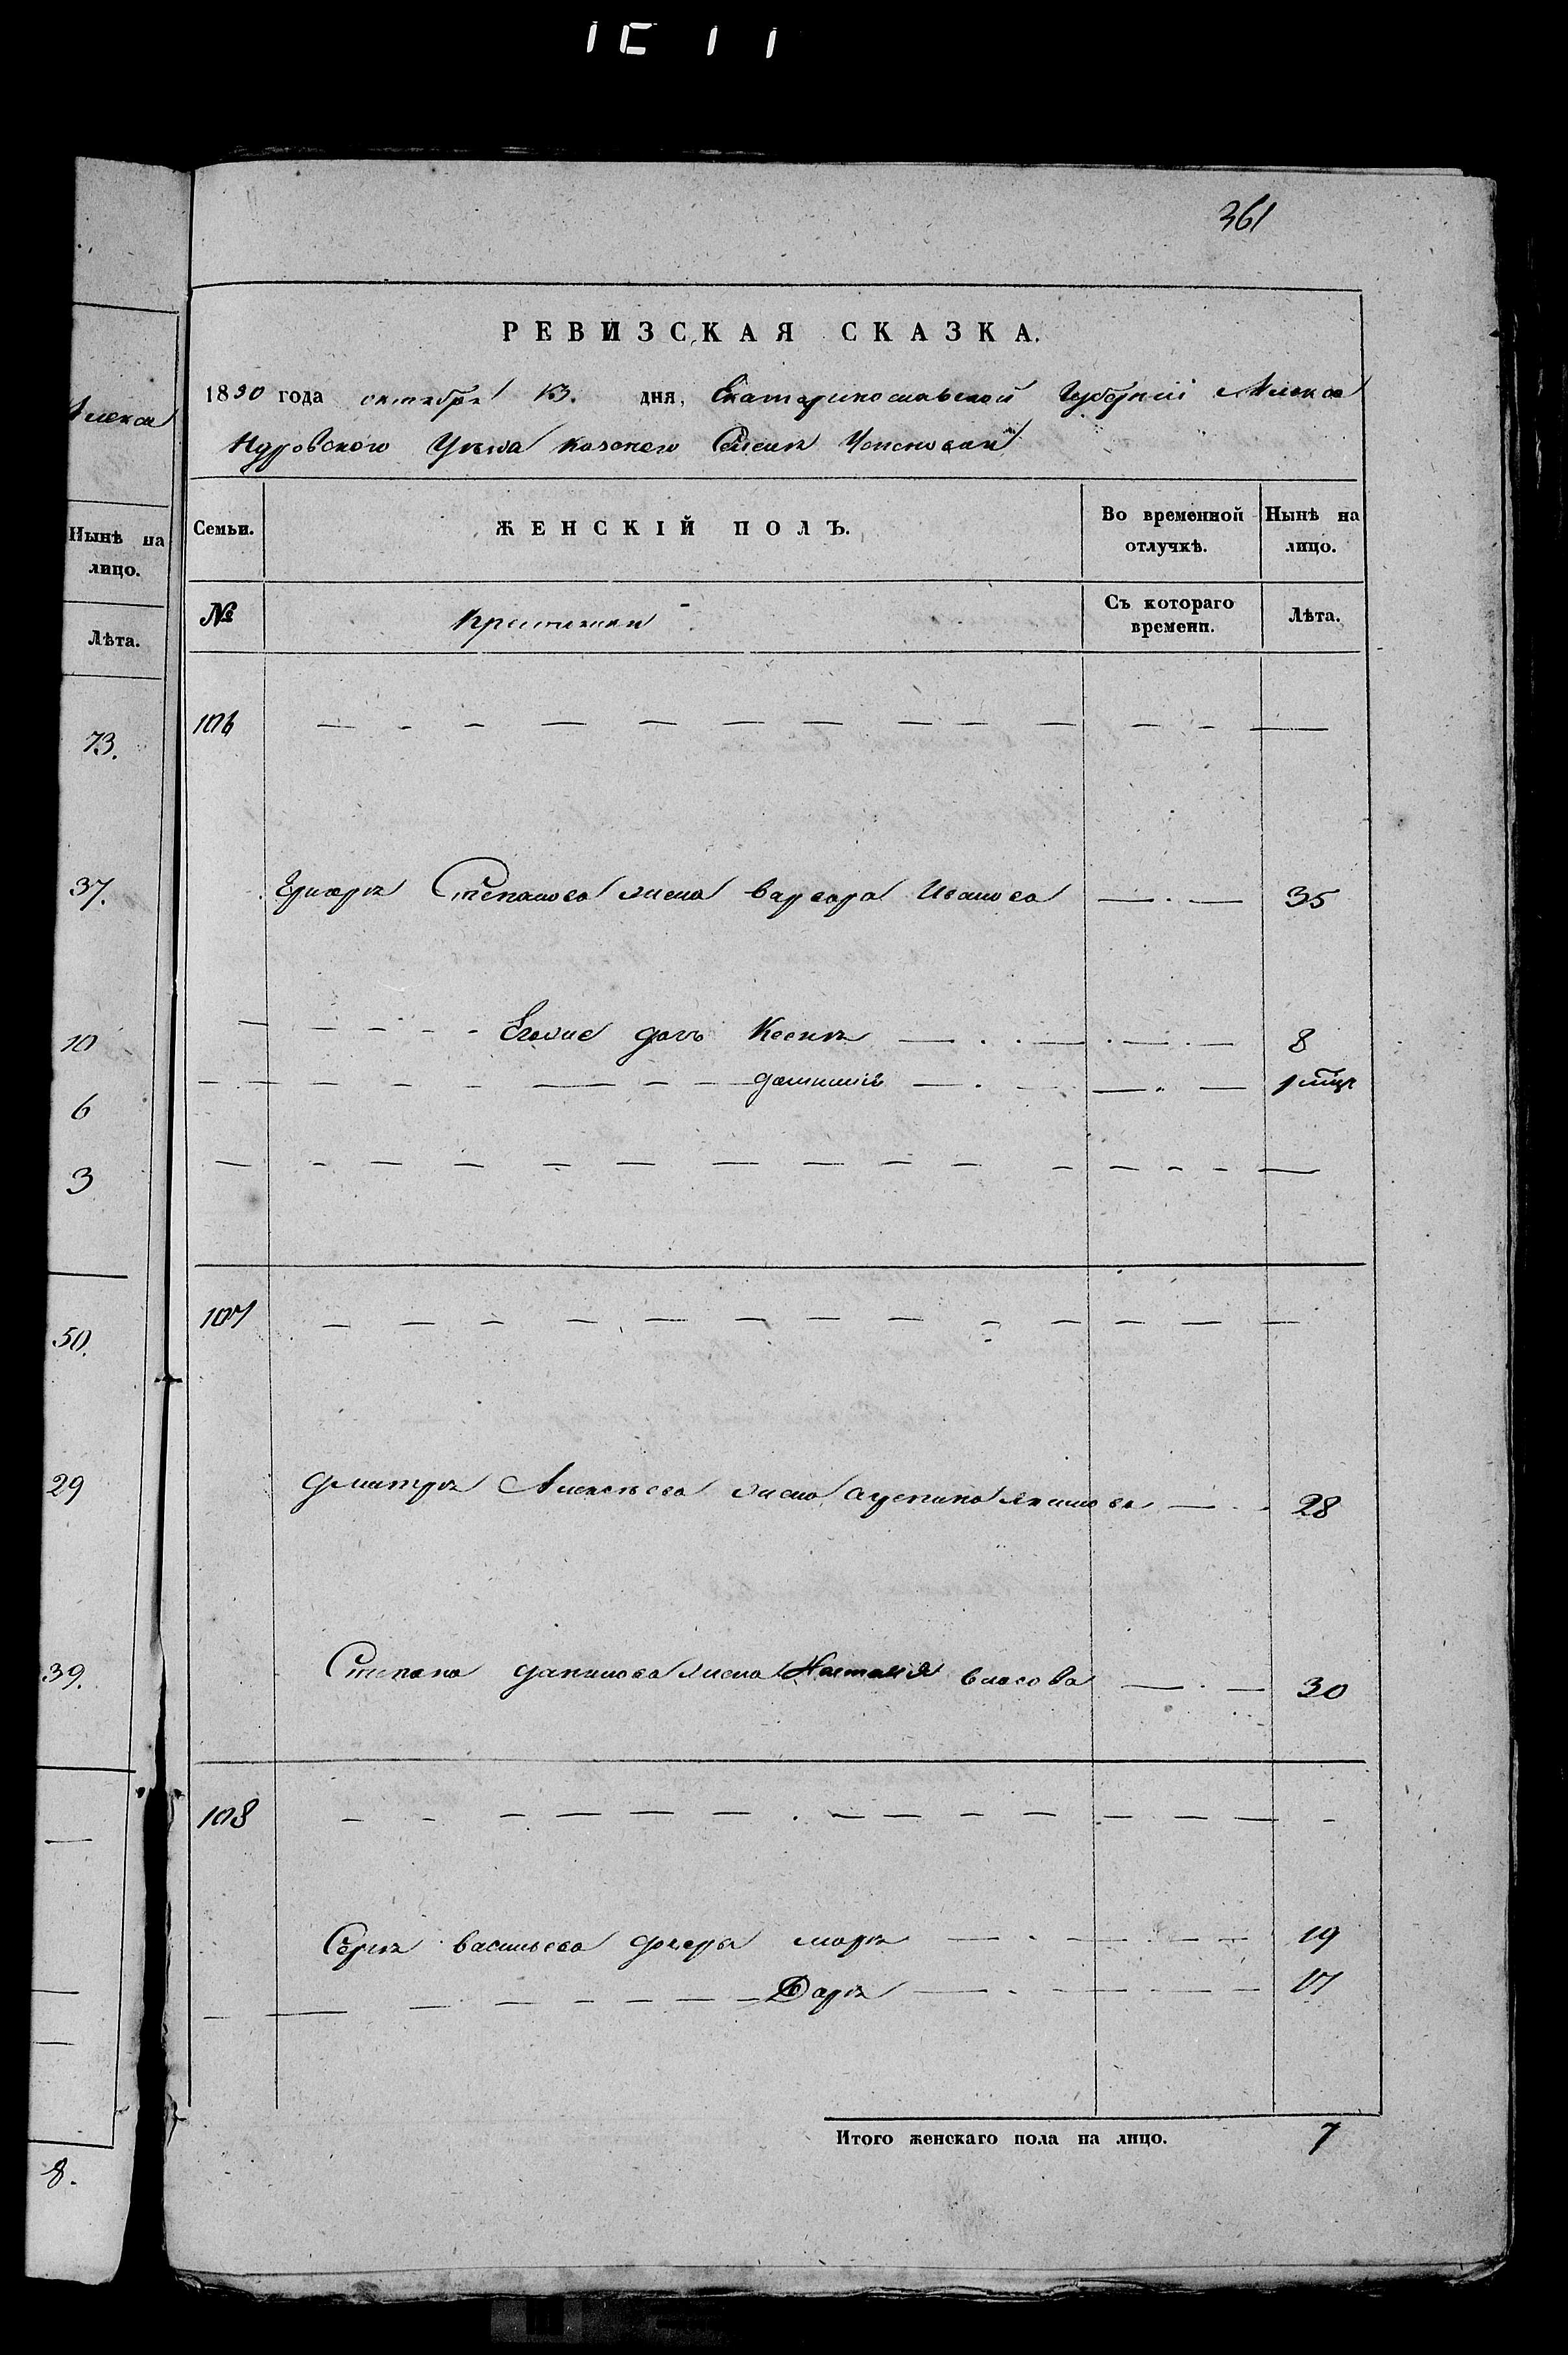 361
РЕВИЗСКАЯ СКАЗКА.
1850 года октября 13. дня, Екатеринославской Губерніи Алекса
ндровского Уезда казенаго Селения
Алекса
Нынѣ на лицо.
Лѣта.
73.
37.
10
6
3
50.
29
39.
8.
Семьи. ЖЕНСКІЙ ПОЛЪ. Во временной отлучкѣ. Нынѣ на лицо.
№ Крестьяни Съ котораго времени. Лѣта.
106
Степанова жена варвара Иванова 35
Еговые дочь Ксения 8
1 мѣця
107
дмитрия Алексеева жена 28
Степана данилова жена Наталия власова 30
108
Сергия васильева дочери маря 19
Даря 17
Итого женскаго пола на лицо. 7